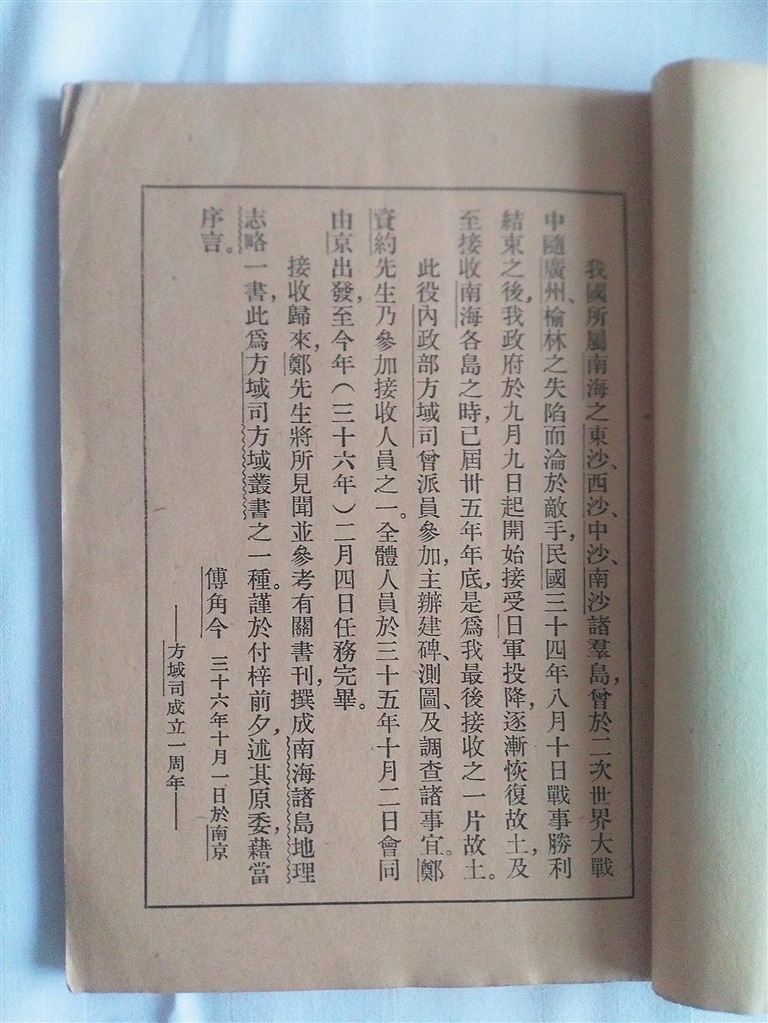 我國所屬南海之東沙、西沙、中沙、南沙諸羣島，曾於二次世界大戰
中隨廣州、榆林之失陷而淪於敵手，民國三十四年八月十日戰事勝利
結束之後，我政府於九月九日起開始接受日軍投降，逐漸恢復故土，及
至接收南海各島之時，已屆卅五年年底，是爲我最後接收之一片故土。
此役內政部方域司曾派員參加，主辦建碑、測圖、及調查諸事宜。鄭
資約先生乃參加接收人員之一。全體人員於三十五年十月二日會同
由京出發，至今年（三十六年）二月四日任務完畢。
接收歸來，鄭先生將所見聞並參考有關書刊，撰成南海諸島地理
志略一書，此爲方域司方域叢書之一種。謹於付梓前夕，述其原委，藉當
序言。
傅角今 三十六年十月一日於南京
——方域司成立一周年——